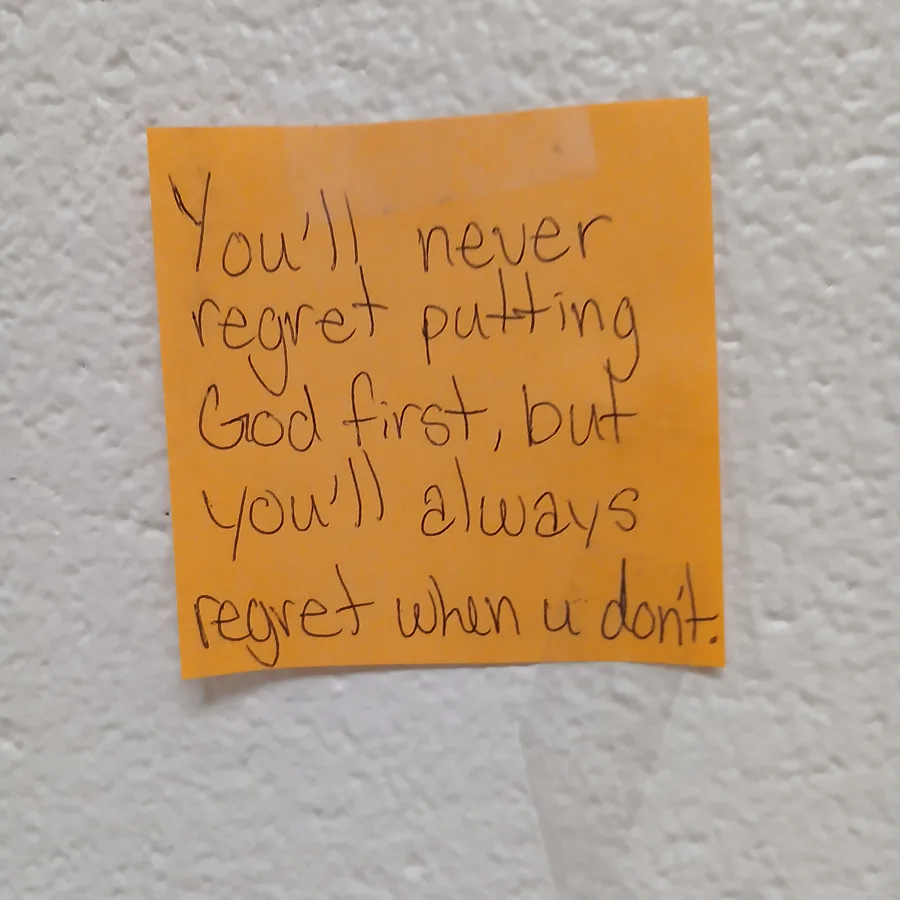 You'll never
regret putting
God first, but
you'll always
regret when u don't.